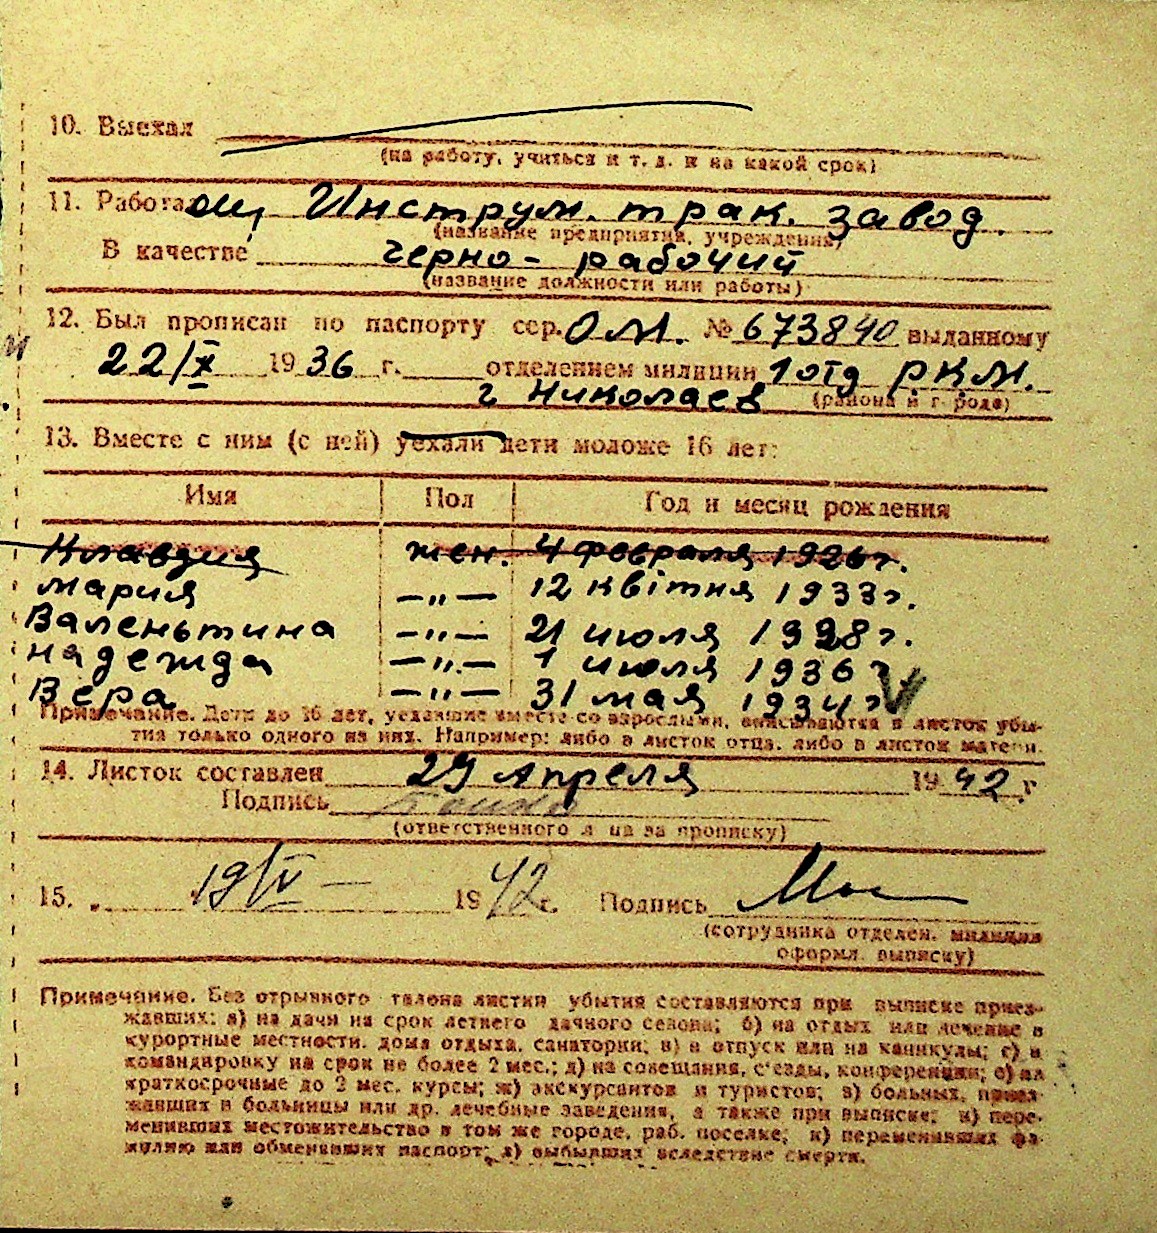 10. Выехал
(на работу, учиться и т. д. и на какой срок)
11. Работал Инструм. трак. завод.
(название предприятия, учреждения)
В качестве черно-рабочий
(название должности или работы)
12. Был прописан по паспорту сер. ОМ. № 673840 выданному
22/X 1936 г. отделением милиции 1 отд Р.К.М.
г Николаев (района и города)
13. Вместе с ним (с ней) уехали дети моложе 16 лет:
Имя Пол Год и месяц рождения
Клавдия жен. 4 февраля 1926 г.
Мария —„— 12 квітня 1933 г.
Валеньтина —„— 21 июля 1928 г.
Надежда —„— 1 июля 1936 г
Вера —„— 31 мая 1934 г
Примечание. Дети до 16 лет, уехавшие вместе со взрослыми, вписываются в листок убы-
тия только одного из них. Например: либо в листок отца, либо в листок матери.
14. Листок составлен 29 Апреля 1942 г
Подпись
(ответственного лица за прописку)
15. „ 19/IV — 1942 г. Подпись
(сотрудника отделен. милиции
оформл. выписку)
Примечание. Без отрывного талона листки убытия составляются при выписке приез-
жавших: а) на дачи на срок летнего дачного сезона; б) на отдых или лечение в
курортные местности, дома отдыха, санатории; в) в отпуск или на каникулы; г) в
командировку на срок не более 2 мес.; д) на совещания, с'езды, конференции; е) на
краткосрочные до 2 мес. курсы; ж) экскурсантов и туристов; з) больных, приез-
жавших в больницы или др. лечебные заведения, а также при выписке; и) пере-
менивших местожительство в том же городе, раб. поселке; к) переменивших фа-
милию или обменявших паспорт; л) выбывших вследствие смерти.